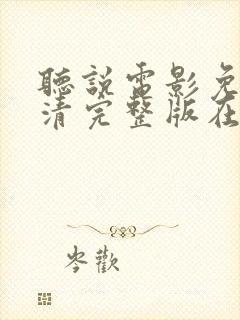 聽說電影免
清完整版在
岑歡